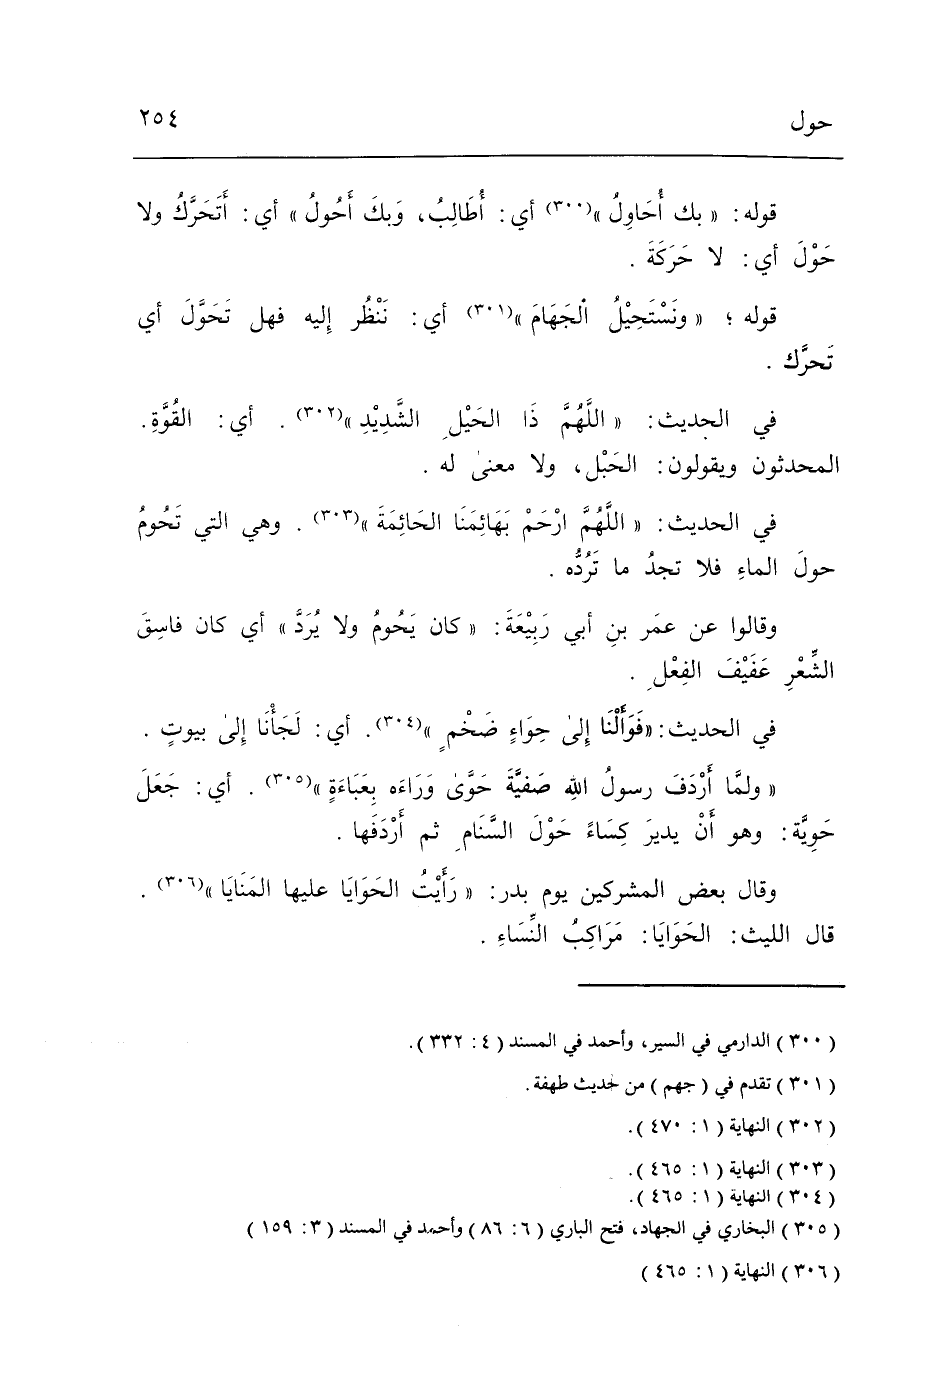 حول ٢٥٤
قوله: « بك أُحَاوِلُ »(٣٠٠) أي: أُطَالِبُ، وَبكَ أَحُولُ » أي: أَتَحَرَّكُ ولا
حَوْلَ أي: لا حَرَكَةَ .
قوله ؛ « ونَسْتَحِيْلُ الْجَهَامَ »(٣٠١) أي: نَنْظُر إِليه فهل تَحَوَّلَ أي
تَحرَّك .
في الحديث: « اللَّهُمَّ ذَا الحَيْلِ الشَّدِيْدِ »(٣٠٢) . أي: القُوَّةِ.
المحدثون ويقولون: الحَبْل، ولا معنىٰ له .
في الحديث: « اللَّهُمَّ ارْحَمْ بَهَائِمَنَا الحَائِمَةَ »(٣٠٣) . وهي التي تَحُومُ
حولَ الماءِ فلا تجدُ ما تَرُدُّه .
وقالوا عن عمَر بنِ أبي رَبِيْعَةَ: « كان يَحُومُ ولا يُرَدَّ » أي كان فاسِقَ
الشِّعْرِ عَفَيْفَ الفِعْلِ .
في الحديث: «فَوَأَلْنَا إِلىٰ حِوَاءٍ ضَخْمٍ »(٣٠٤). أي: لَجَأْنَا إِلىٰ بيوتٍ .
« ولمَّا أَرْدَفَ رسولُ الله صَفيَّةَ حَوَّىٰ وَرَاءَه بِعَبَاءَةٍ »(٣٠٥) . أي: جَعَلَ
حَوِيَّة: وهو أَنْ يديرَ كِسَاءً حَوْلَ السَّنَامِ ثم أَرْدَفَها .
وقال بعض المشركين يوم بدر: « رَأَيْتُ الحَوَايَا عليها المَنَايَا »(٣٠٦) .
قال الليث: الحَوَايَا: مَرَاكِبُ النِّسَاءِ .
( ٣٠٠ ) الدارمي في السير، وأحمد في المسند ( ٤ : ٣٣٢ ).
( ٣٠١ ) تقدم في ( جهم ) من حديث طهفة.
( ٣٠٢ ) النهاية ( ١ : ٤٧٠ ).
( ٣٠٣ ) النهاية ( ١ : ٤٦٥ ).
( ٣٠٤ ) النهاية ( ١ : ٤٦٥ ).
( ٣٠٥ ) البخاري في الجهاد، فتح الباري ( ٦ : ٨٦ ) وأحمد في المسند ( ٣ : ١٥٩ )
( ٣٠٦ ) النهاية ( ١ : ٤٦٥ )